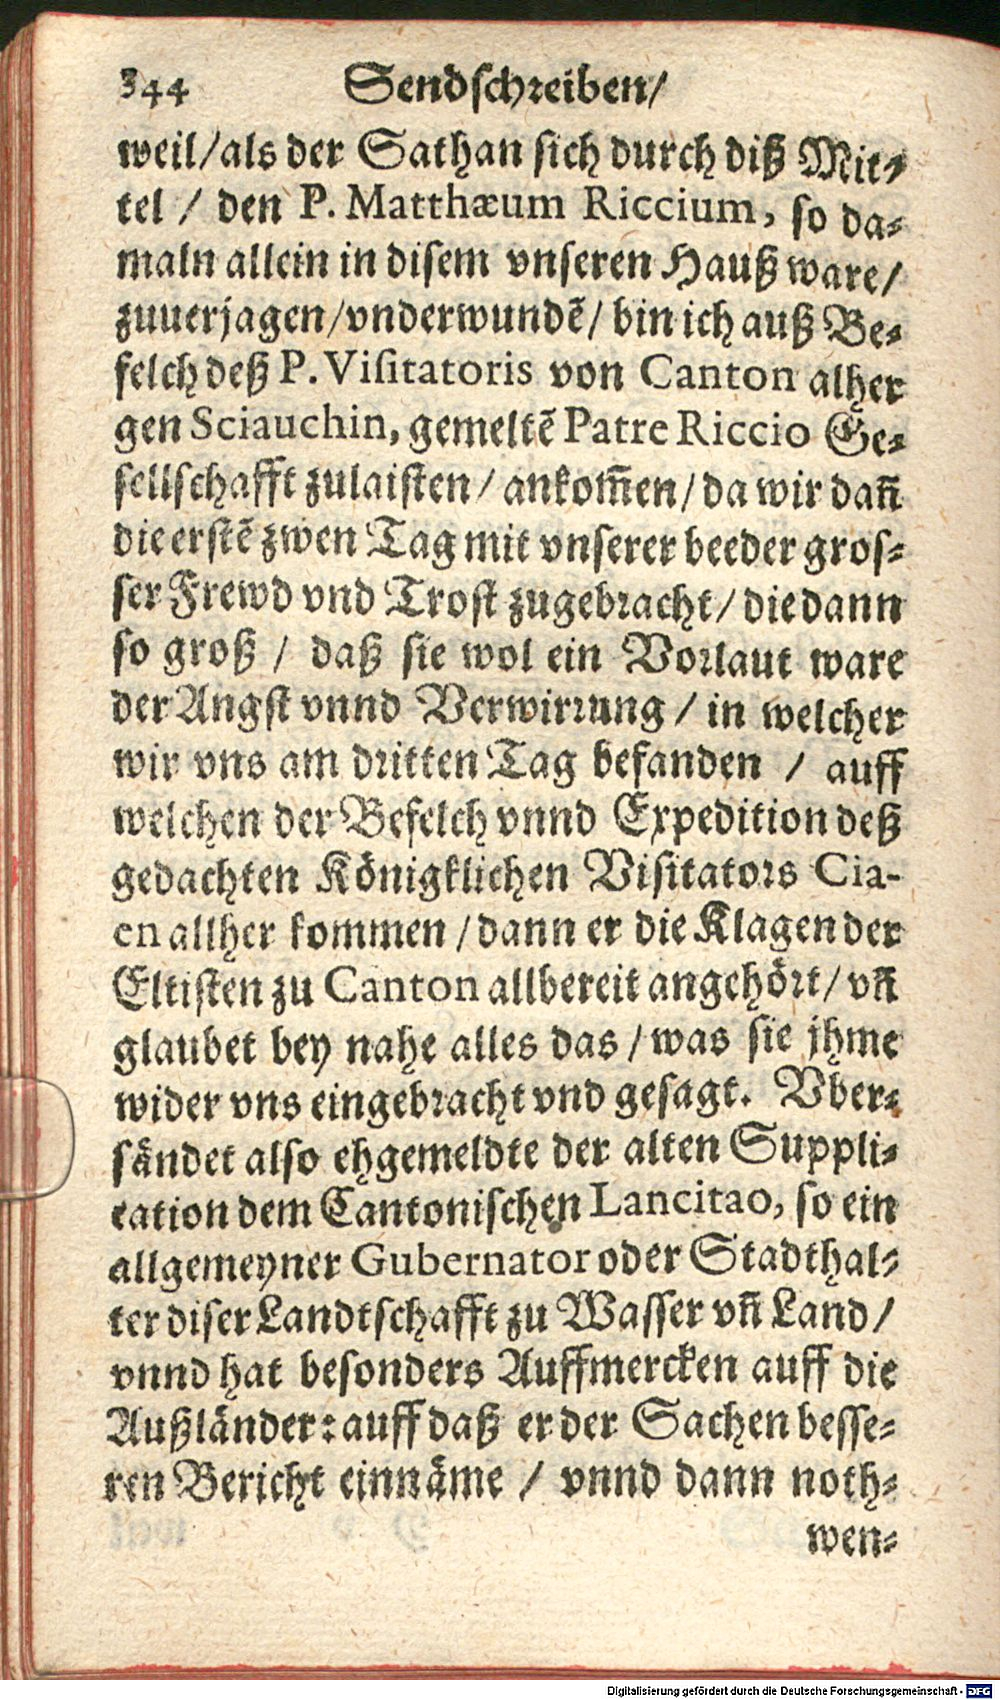 344 Sendschreiben/
weil/als der Sathan sich durch diß Mit-
tel / den P. Matthæum Riccium, so da-
maln allein in disem vnseren Hauß ware/
zuuerjagen/vnderwundẽ/ bin ich auß Be-
felch deß P. Visitatoris von Canton alher
gen Sciauchin, gemeltẽ Patre Riccio Ge-
sellschafft zulaisten/ ankom̃en/ da wir dañ
die erstẽ zwen Tag mit vnserer beeder gros-
ser Frewd vnd Trost zugebracht/ die dann
so groß / daß sie wol ein Vorlaut ware
der Angst vnnd Verwirrung / in welcher
wir vns am dritten Tag befanden / auff
welchen der Befelch vnnd Expedition deß
gedachten Königklichen Visitators Cia-
en allher kommen /dann er die Klagen der
Eltisten zu Canton allbereit angehört/ vñ
glaubet bey nahe alles das / was sie jhme
wider vns eingebracht vnd gesagt. Vber-
sändet also ehgemeldte der alten Suppli-
cation dem Cantonischen Lancitao, so ein
allgemeyner Gubernator oder Stadthal-
ter diser Landtschafft zu Wasser vñ Land/
vnnd hat besonders Auffmercken auff die
Außländer: auff daß er der Sachen besse-
ren Bericht einnäme / vnnd dann noth-
wen-
Digitalisierung gefördert durch die Deutsche Forschungsgemeinschaft - DFG